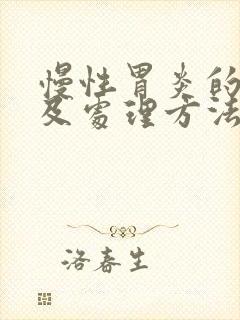 慢性胃炎的
及处理方法
洛春生